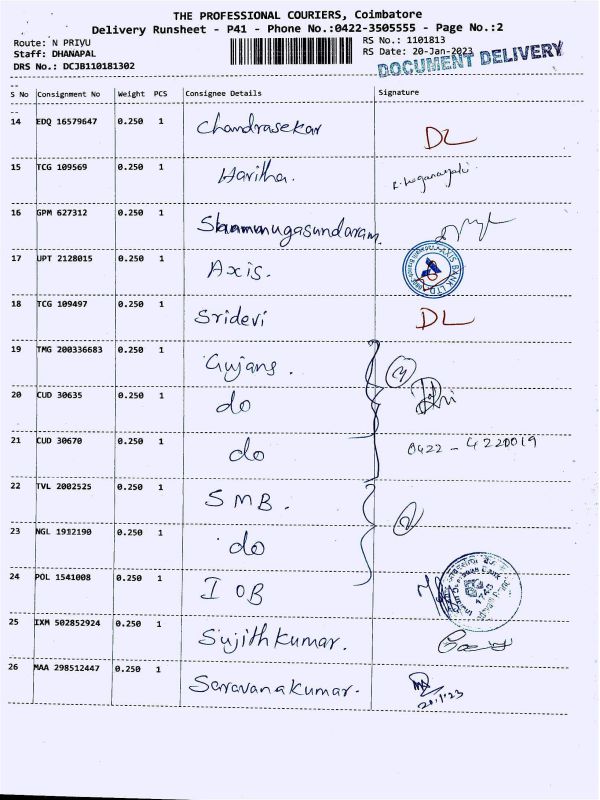 THE PROFESSIONAL COURIERS, Coimbatore
Delivery Runsheet - P41 - Phone No.:0422-3505555 - Page No.:2
Route: N PRIYU
Staff: DHANAPAL
DRS No.: DCJB110181302
RS No.: 1101813
RS Date: 20-Jan-2023
DOCUMENT DELIVERY
--
S No Consignment No Weight PCS Consignee Details Signature
--
14 EDQ 16579647 0.250 1 Chandrasekar DL
15 TCG 109569 0.250 1 Haritha.
16 GPM 627312 0.250 1 Shanmugasundaram.
17 UPT 2128015 0.250 1 Axis. AXIS BANK LTD
18 TCG 109497 0.250 1 Sridevi DL
19 TMG 200336683 0.250 1 Gujans. 3
20 CUD 30635 0.250 1 do
21 CUD 30670 0.250 1 do 0422 - 4220019
22 TVL 2002525 0.250 1 SMB. 2
23 NGL 1912190 0.250 1 do
24 POL 1541008 0.250 1 IOB 1743
25 IXM 502852924 0.250 1 Sujithkumar.
26 MAA 298512447 0.250 1 Saravanakumar. 20.1.23